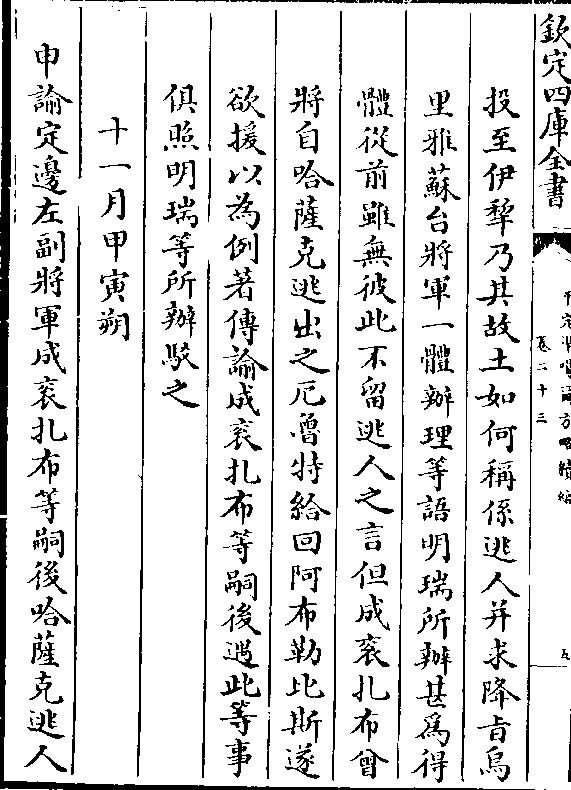 欽定四庫全書
平定準噶爾方略續編
卷二十三
五
投至伊犂乃其故土如何稱係逃人并求降旨烏
里雅蘇台將軍一體辦理等語明瑞所辦甚爲得
體從前雖無彼此不留逃人之言但成衮扎布曾
將自哈薩克逃出之厄魯特給回阿布勒比斯遂
欲援以為例著傳諭成衮扎布等嗣後遇此等事
俱照明瑞等所辦駁之
十一月甲寅朔
申諭定邊左副將軍成衮扎布等嗣後哈薩克逃人